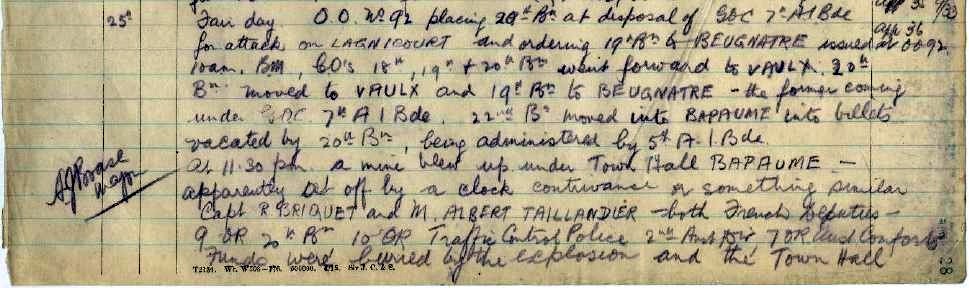 25th Fair day. O.O. No 92 placing 20th Bn at disposal of GOC 7th A I Bde App 36
for attack on LAGNICOURT and ordering 19th Bn to BEUGNATRE issued at OO92.
10am. BM, CO's 18th, 19th + 20th Bns went forward to VAULX. 20th
Bn moved to VAULX and 19th Bn to BEUGNATRE - the former coming
under GOC. 7th A I Bde. 22nd Bn moved into BAPAUME into billets
vacated by 20th Bn, being administered by 5th A.I.Bde.
At 11.30 pm a mine blew up under Town Hall BAPAUME -
apparently set off by a clock contrivance or something similar
Capt R. BRIQUET and M. ALBERT TAILLANDIER - both French Deputies -
9 OR 20th Bn 10 OR Traffic Control Police 2nd Aust Div 7 OR Aust Comforts
Funds were buried by the explosion and the Town Hall
Major
T2134. Wt. W708-776. 500000. 4/15. Sir J. C. & S.